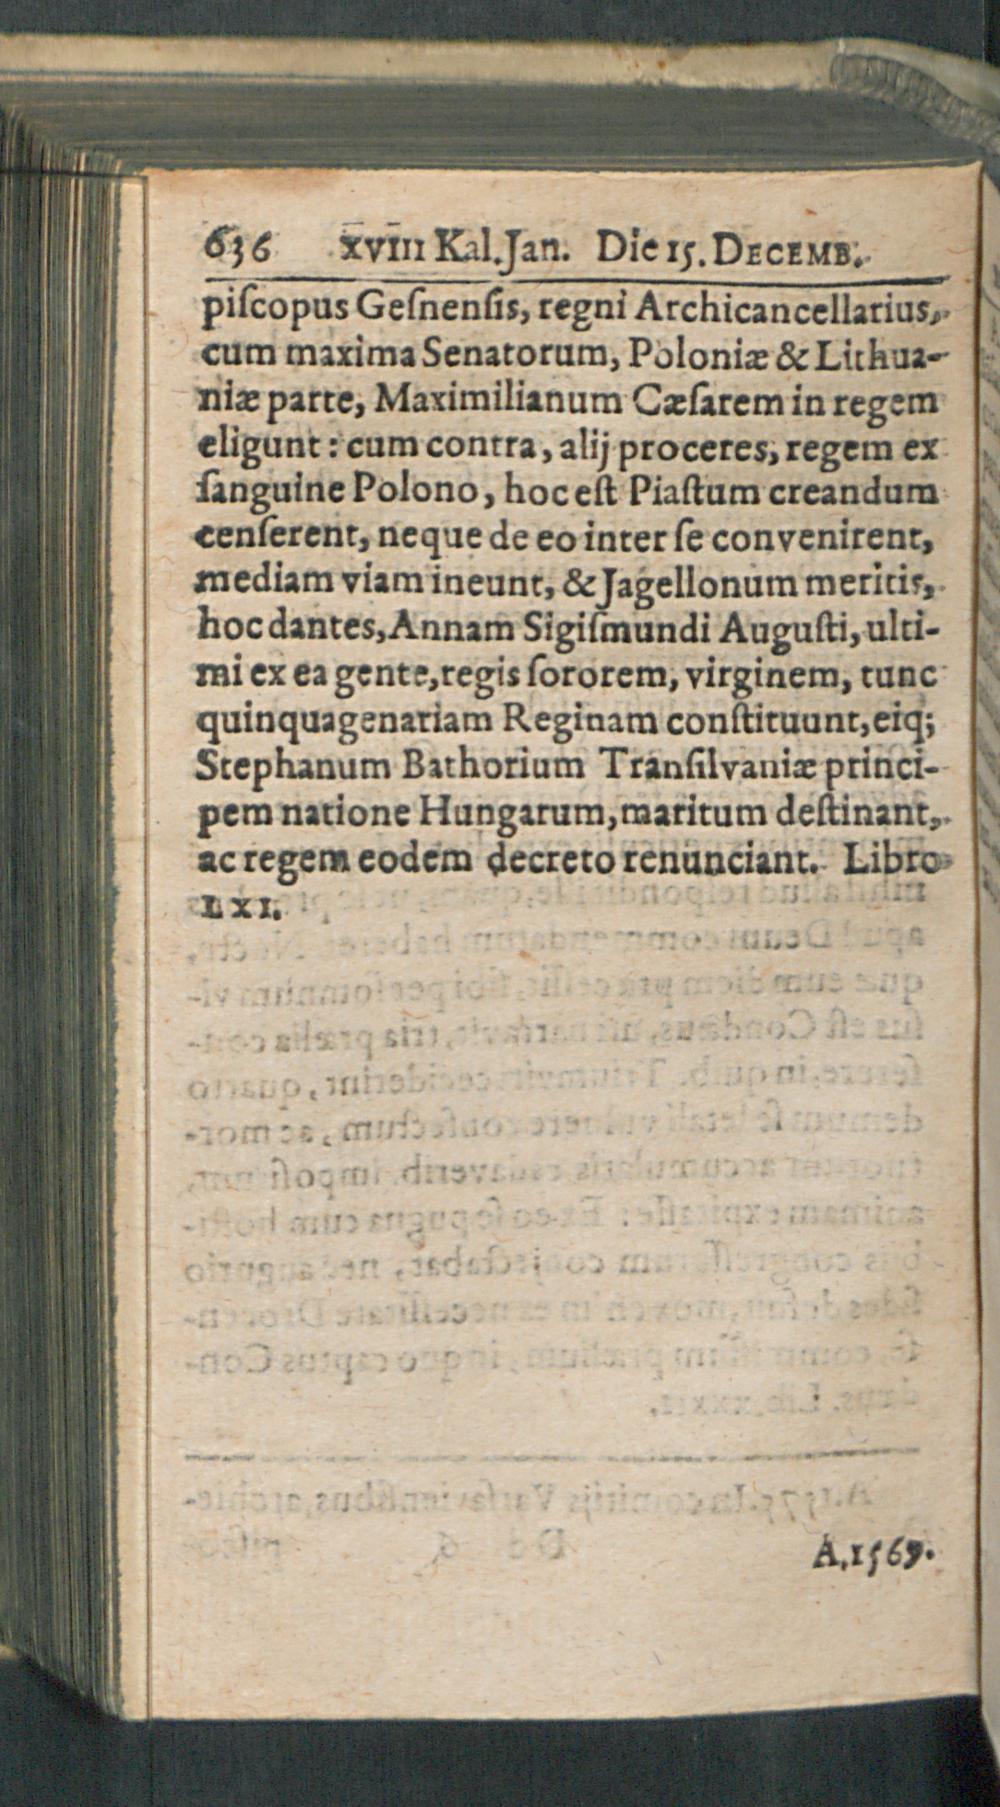 636 XVIII Kal. Jan. Die 15. DECEMB.
piſcopus Geſnenſis, regni Archicancellarius,
cum maxima Senatorum, Poloniæ & Lithua-
niæ parte, Maximilianum Cæſarem in regem
eligunt: cum contra, alij proceres, regem ex
ſanguine Polono, hoc eſt Piaſtum creandum
cenſerent, neque de eo inter ſe convenirent,
mediam viam ineunt, & Jagellonum meritis,
hoc dantes, Annam Sigiſmundi Auguſti, ulti-
mi ex ea gente, regis ſororem, virginem, tunc
quinquagenariam Reginam conſtituunt, eiq;
Stephanum Bathorium Tranſilvaniæ princi-
pem natione Hungarum, maritum deſtinant,
ac regem eodem decreto renunciant. Libro
LXI.
A. 1569.